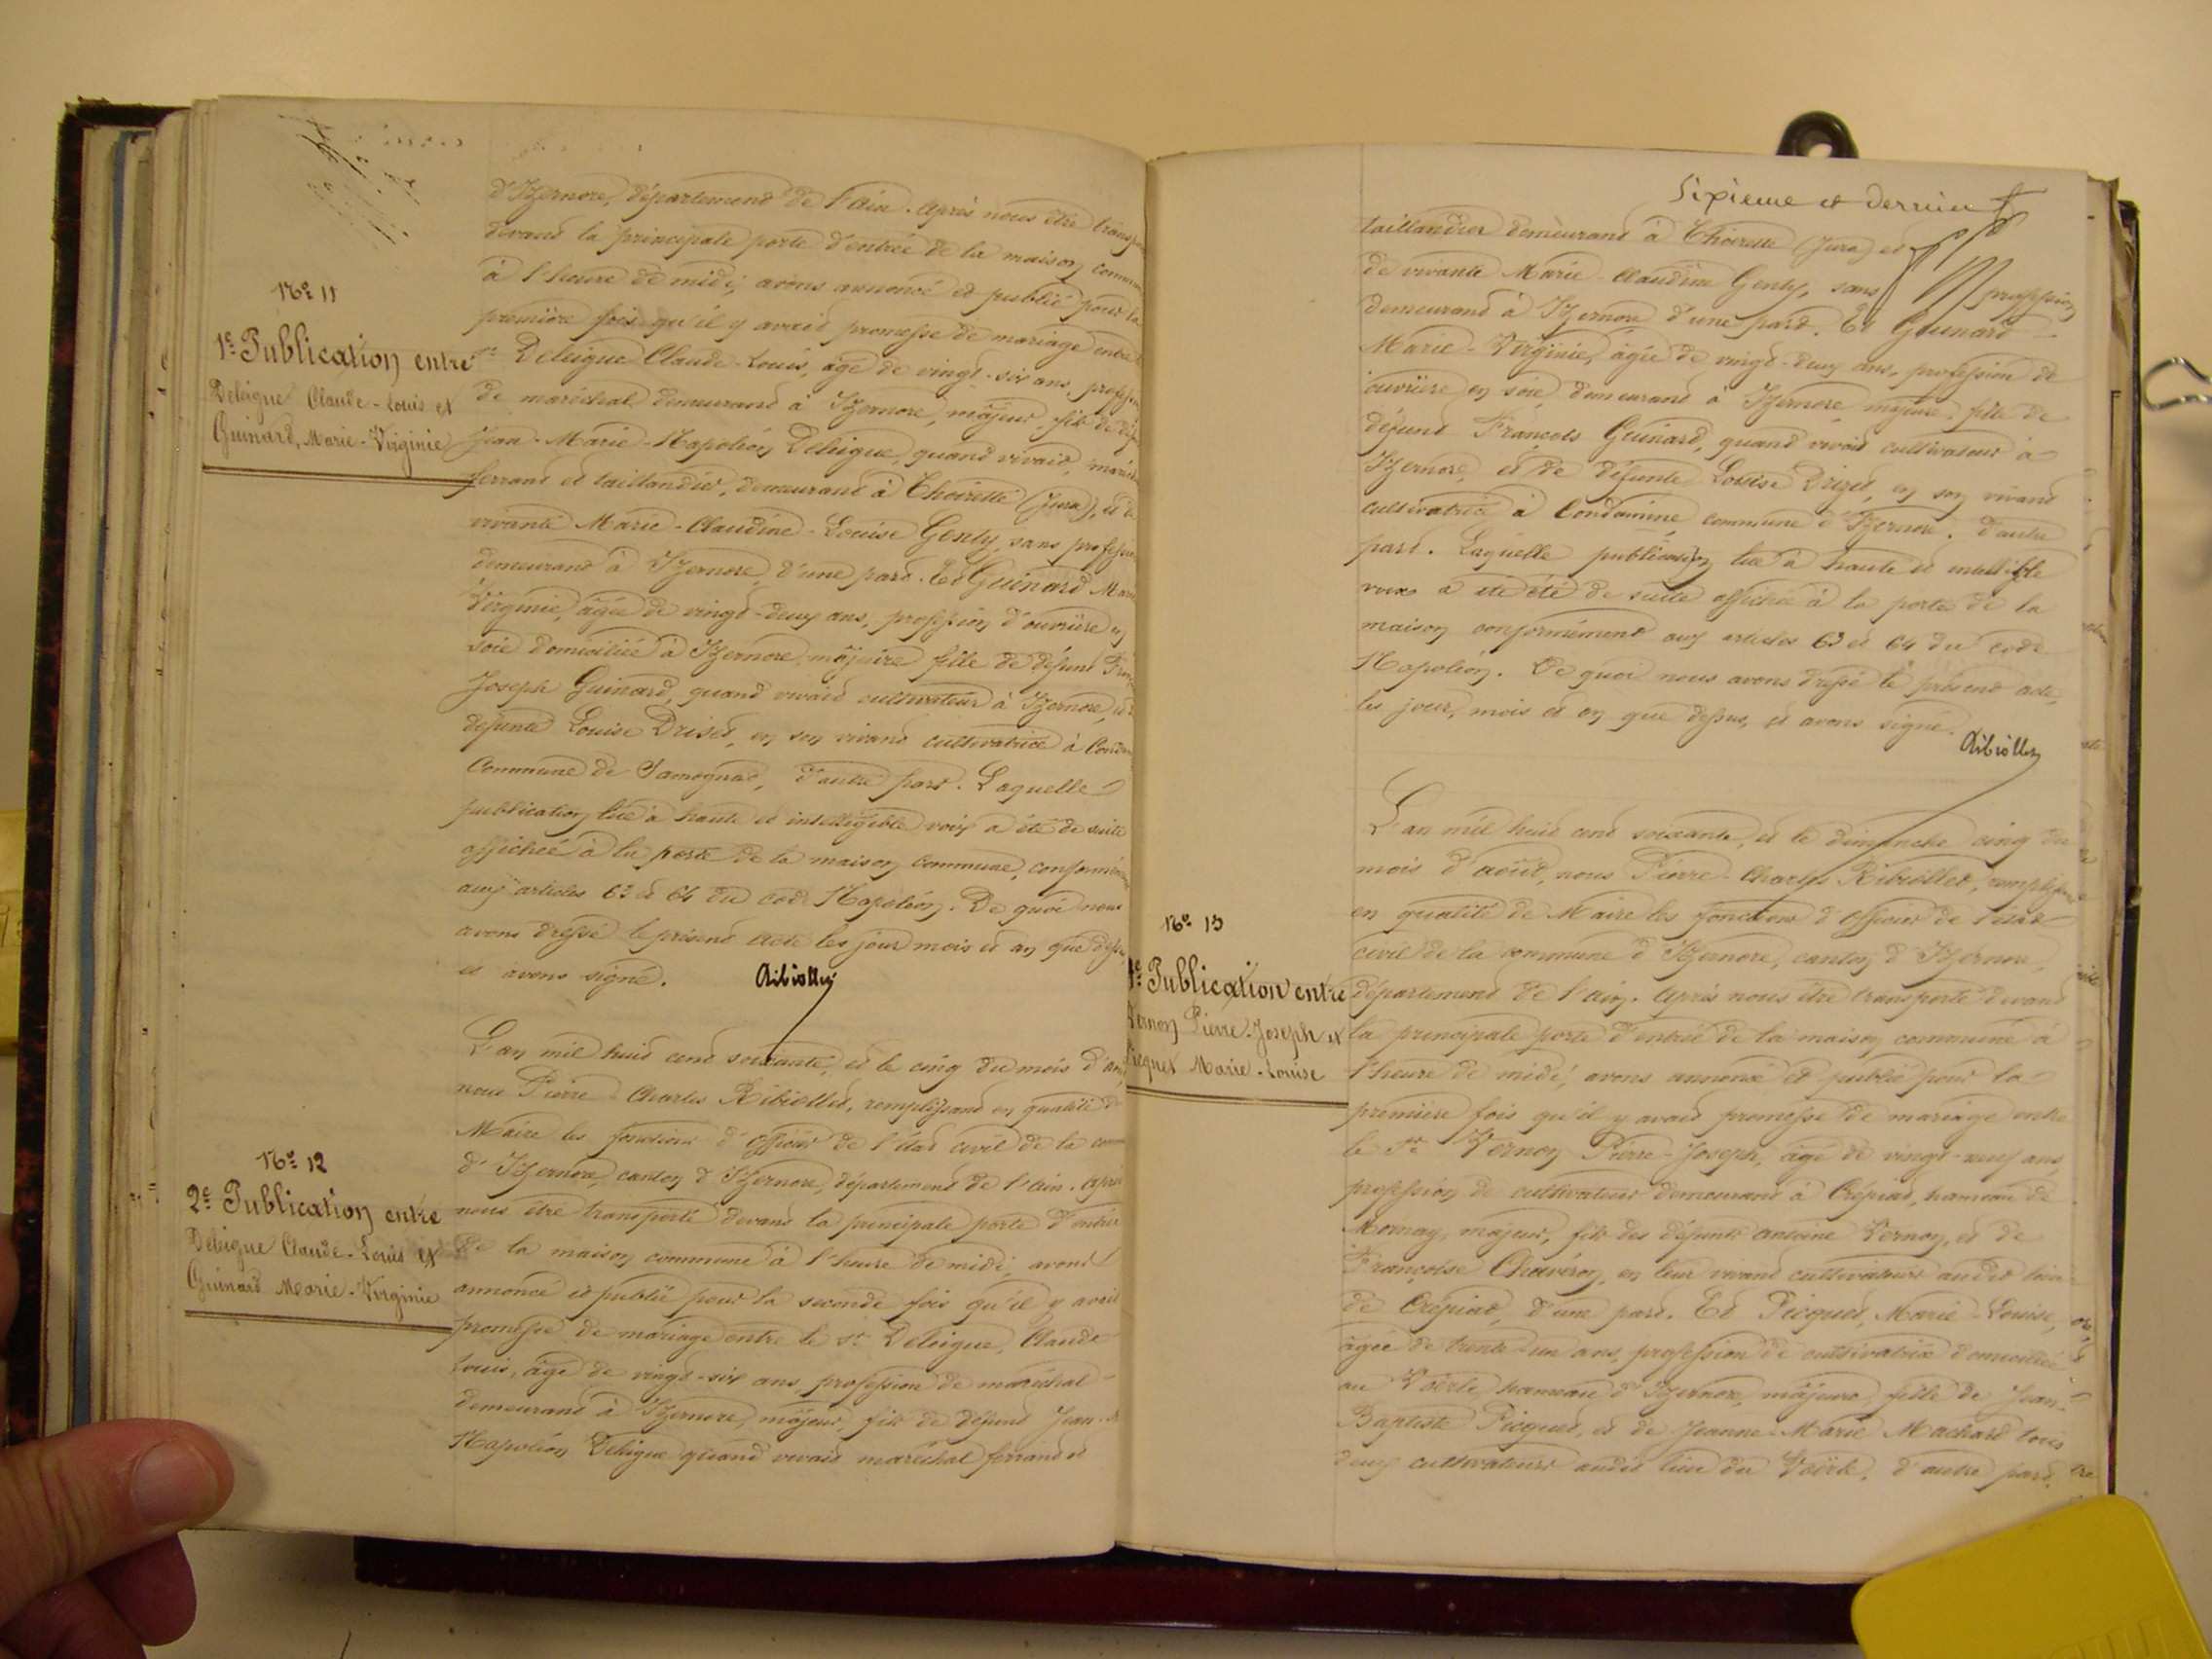 d'Izernore, département de l'Ain. Après nous être
devant la principale porte d'entrée de la maison
à l'heure de midi, avons annoncé et publié pour la
première fois qu'il y avait promesse de mariage entre
Nº 11
1e Publication entre
Deleigue Claude-Louis et
Guinard, Marie-Virginie
Sr Deleigue Claude-Louis, âgé de vingt-six ans,
de maréchal demeurant à Izernore, majeur, fils de
Jean-Marie-Napoléon Deleigue, quand vivait,
ferrand et taillandier, demeurant à Thoirette (Jura), et
vivante Marie-Claudine-Louise Genty, sans
demeurant à Izernore, d'une part. Et Guinard
Virginie, âgée de vingt-deux ans, profession d'ouvrière en
soie domiciliée à Izernore, majeure fille de défunt
Joseph Guinard, quand vivait cultivateur à Izernore,
défunte Louise Drised, en son vivant cultivatrice à
Commune de Samognat, d'autre part. Laquelle
publication lue à haute et intelligible voix a été de suite
affichée à la porte de la maison commune,
aux articles 63 et 64 du code Napoléon. De quoi nous
avons dressé le présent acte les jour mois et an que
et avons signé. Ribiollet
L'an mil huit cent soixante, et le cinq du mois
nous Pierre Charles Ribiollet, remplissant en qualité de
Maire les fonctions d'officier de l'état civil de la
d'Izernore, canton d'Izernore, département de l'Ain. Après
Nº 12
2e Publication entre
Deleigue Claude-Louis et
Guinard Marie-Virginie
nous être transporté devant la principale porte d'entrée
de la maison commune à l'heure de midi, avons
annoncé et publié pour la seconde fois qu'il y avait
promesse de mariage entre le Sr Deleigue, Claude
Louis, âgé de vingt-six ans, profession de maréchal
demeurant à Izernore, majeur, fils de défunt Jean
Napoléon Deleigue quand vivait maréchal ferrand et
Sixième et dernier f
taillandier demeurant à Thoirette (Jura) et
de vivante Marie-Claudine Genty, sans profession
demeurant à Izernore d'une part. Et Guinard
Marie-Virginie, âgée de vingt-deux ans, profession de
ouvrière en soie, demeurant à Izernore majeure, fille de
défunt François Guinard, quand vivait cultivateur à
Izernore, et de défunte Louise Drised, en son vivant
cultivatrice à Condamine commune d'Izernore, d'autre
part. Laquelle publication lue à haute et intelligible
voix a été été de suite affichée à la porte de la
maison conformément aux articles 63 et 64 du code
Napoléon. De quoi nous avons dressé le présent acte,
les jour, mois et an que dessus, et avons signé.
Ribiollet
L'an mil huit cent soixante, et le dimanche cinq du
mois d'août, nous Pierre-Charles Ribiollet, remplissant
en qualité de Maire les fonctions d'officier de l'état
civil de la commune d'Izernore, canton d'Izernore,
Nº 13
1e Publication entre
Vernon Pierre-Joseph et
Picquet Marie-Louise
département de l'Ain. Après nous être transporté devant
la principale porte d'entrée de la maison commune à
l'heure de midi, avons annoncé et publié pour la
première fois qu'il y avait promesse de mariage entre
le Sr Vernon Pierre-Joseph, âgé de vingt-neuf ans
profession de cultivateur demeurant à Crépiat, hameau de
Mornay, majeur, fils des défunts Antoine Vernon, et de
Françoise Chavéron, en leur vivant cultivateurs audit lieu
de Crépiat, d'une part. Et Picquet, Marie-Louise,
âgée de trente-un ans, profession de cultivatrice domiciliée
au Voërle hameau d'Izernore, majeure, fille de Jean-
Baptiste Picquet, et de Jeanne-Marie Machard tous
deux cultivateurs audit lieu du Voërle, d'autre part.